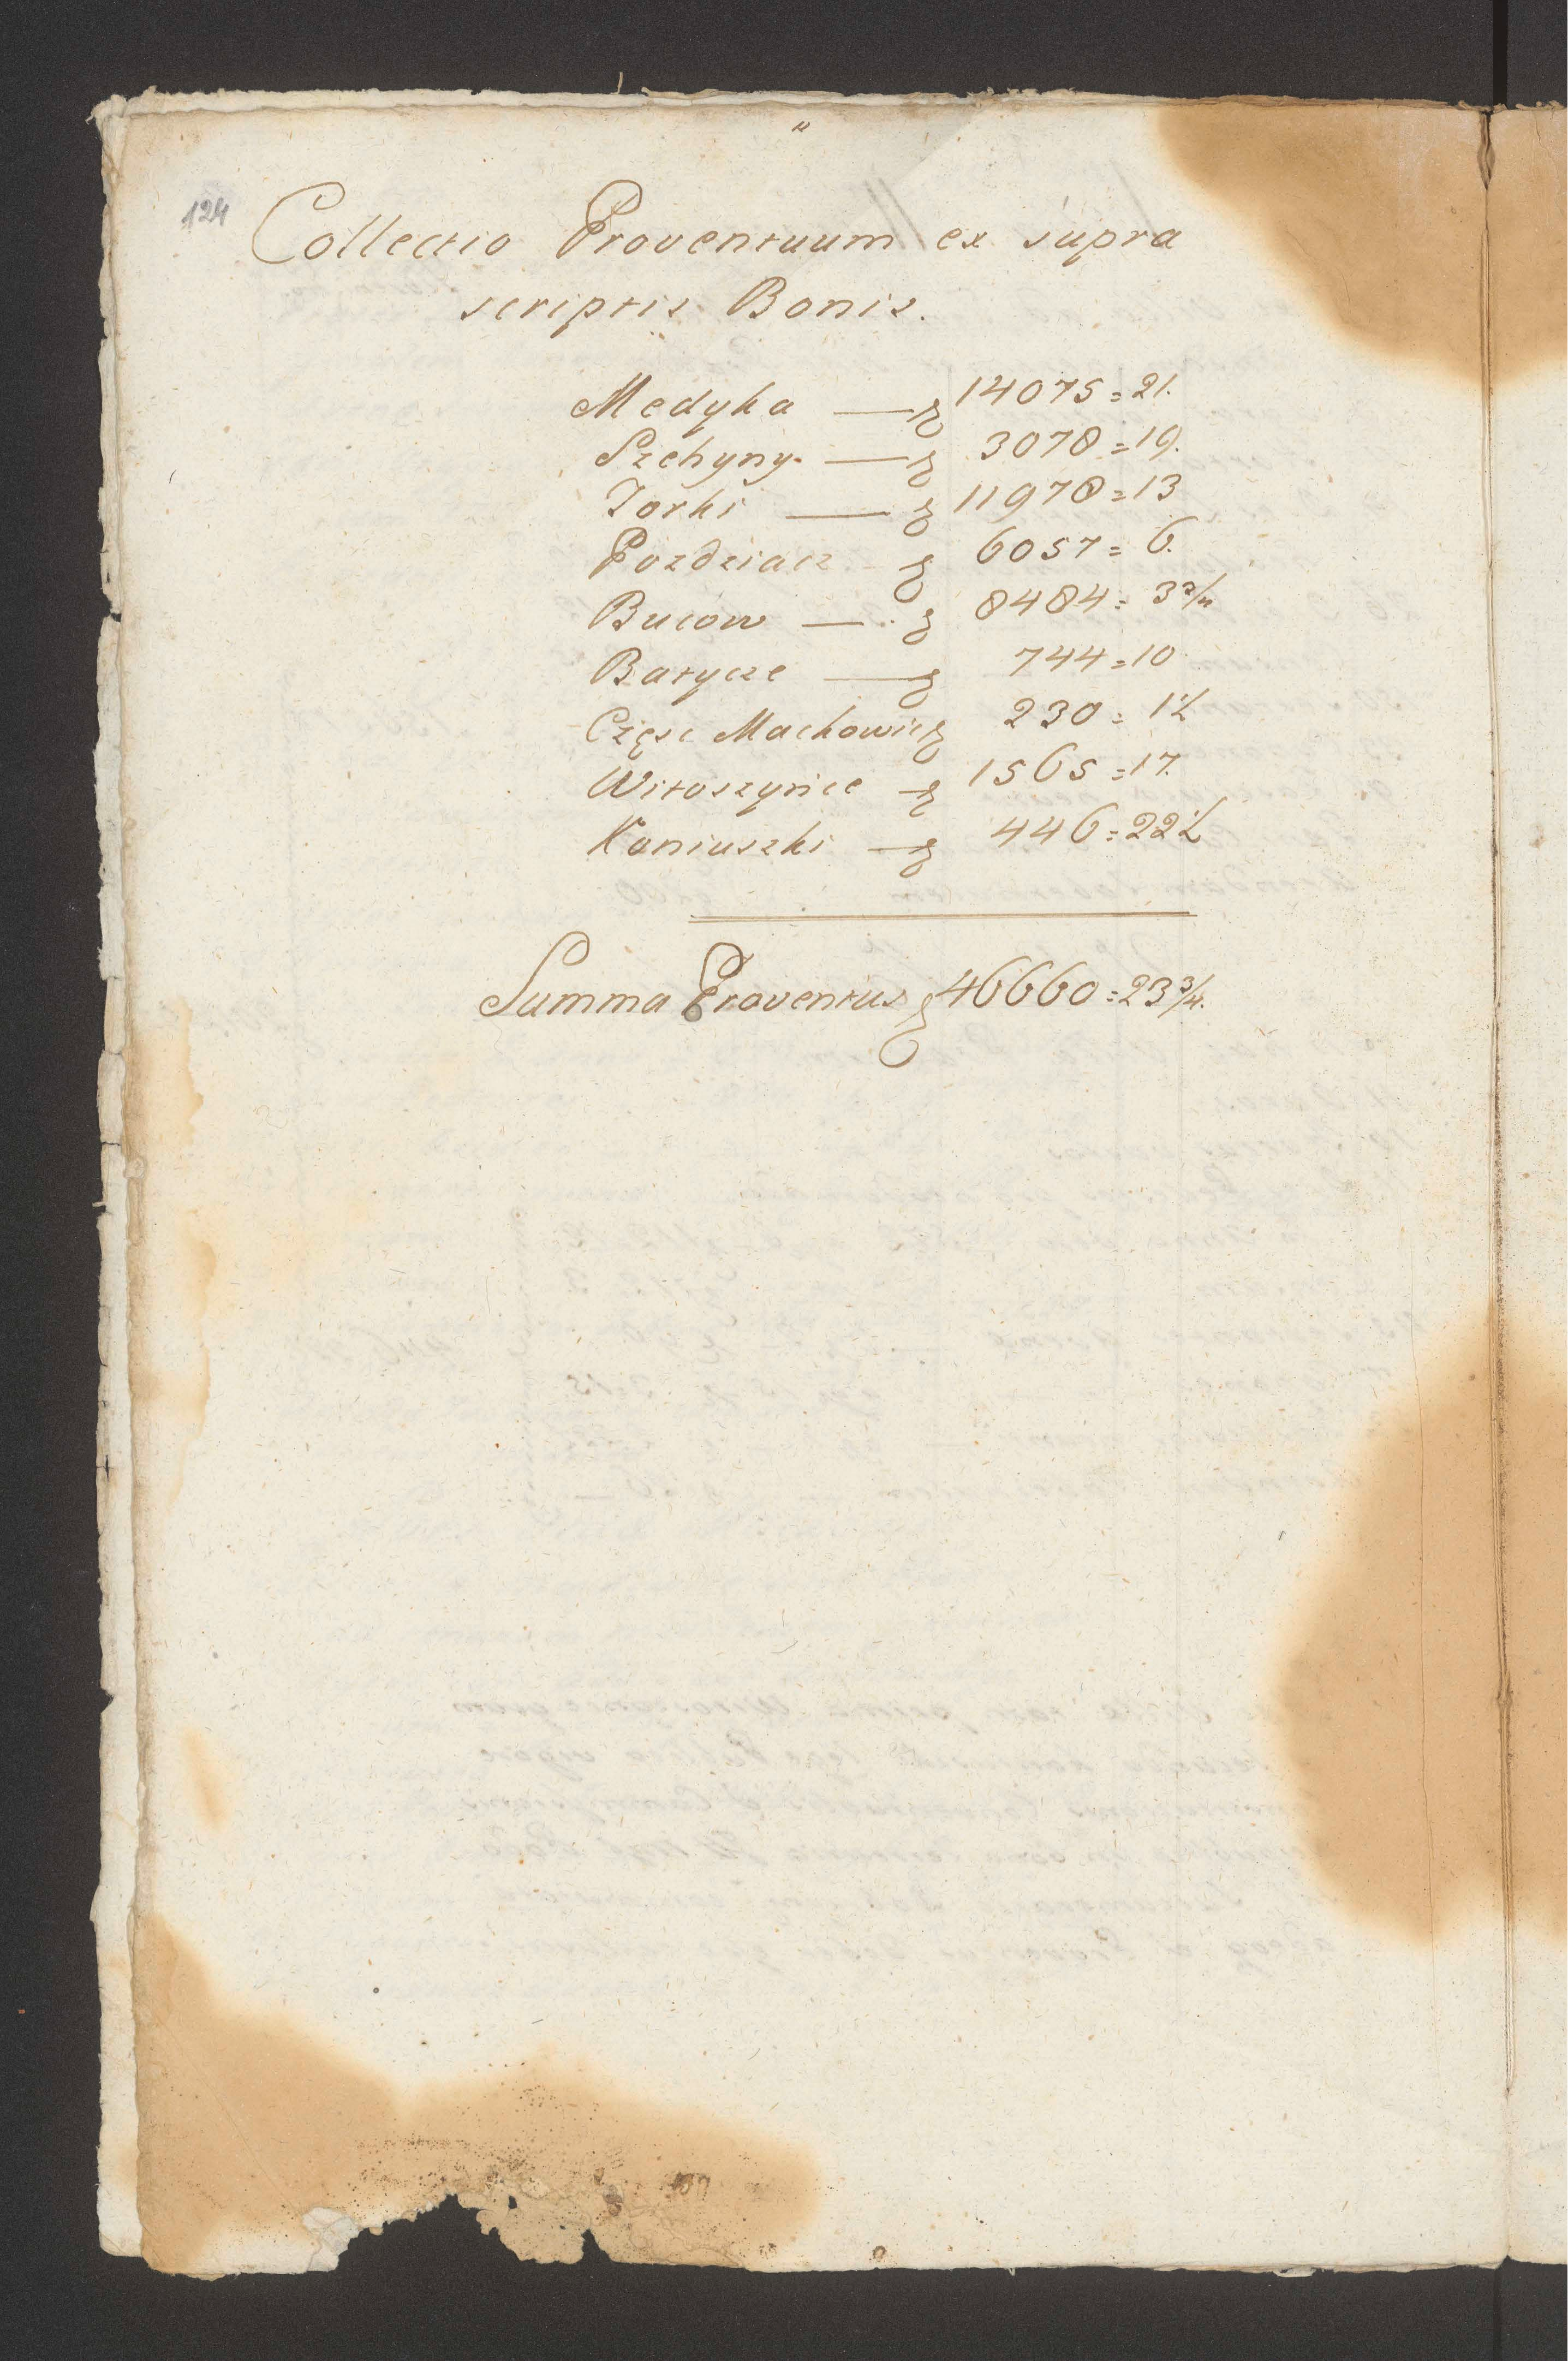 124
Collectio Proventuum ex supra
scriptis Bonis.
Medyka — ƶ 14075 = 21.
Szehyny — ƶ 3078 = 19.
Torki — ƶ 11978 = 13
Pozdziacz - ƶ 6057 = 6.
Bucow — ƶ 8484 = 3 3/4
Batycze — ƶ 744 = 10
Częsc Machowic ƶ 230 = 1 1/2
Witoszynce — ƶ 1565 = 17.
Koniuszki — ƶ 446 = 22 1/2
Summa Proventus ƶ 46660 = 23 3/4.